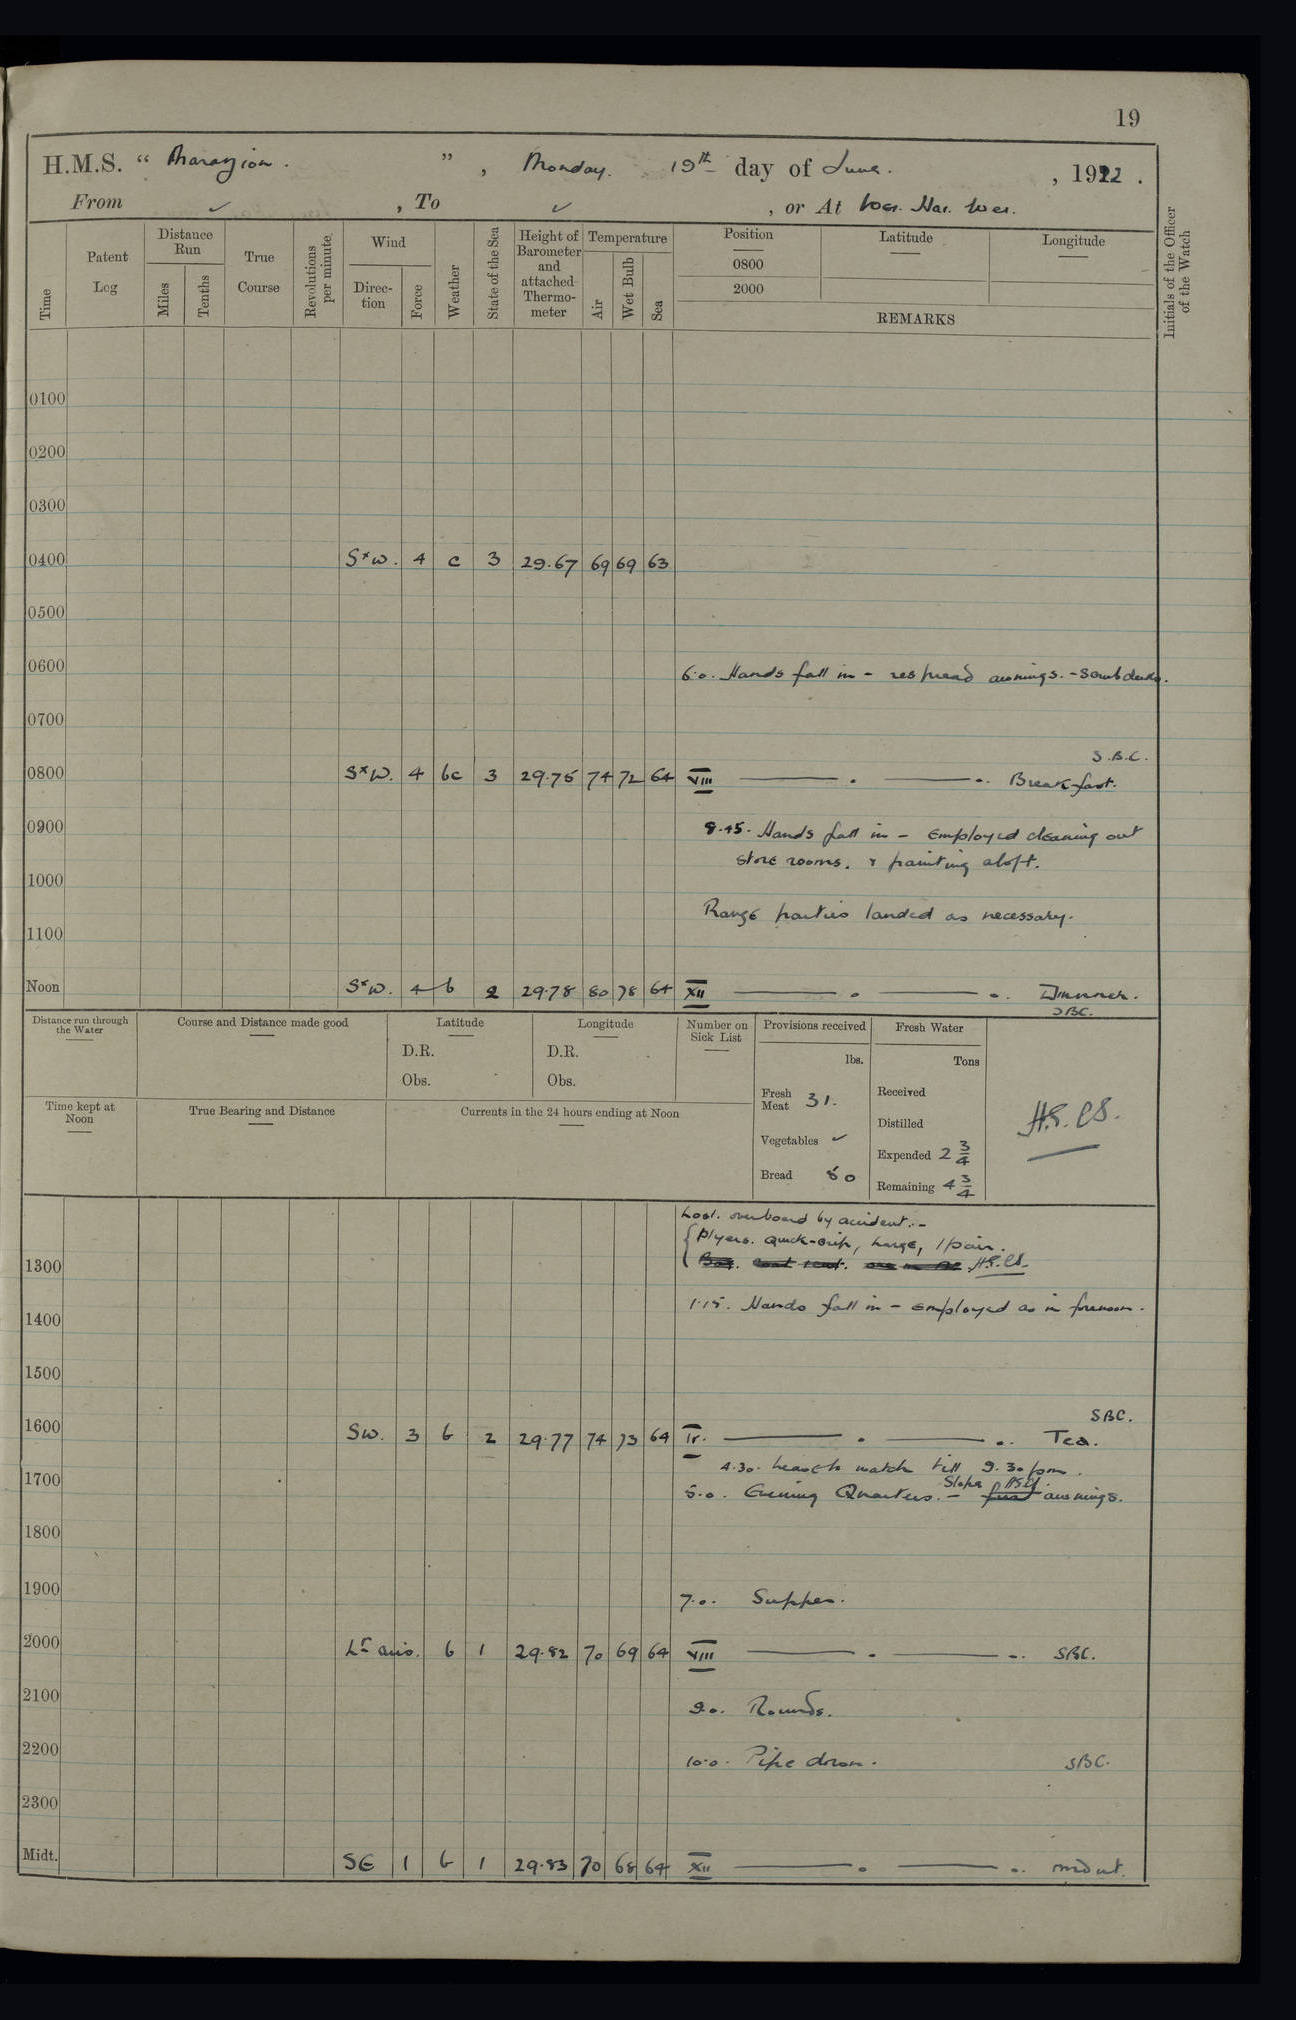 19
H.M.S. " Marazion. " , Monday. 19th day of June. , 1922 .
From ✓ , To ✓ , or At Wei. Hai. Wei.
Time
Patent Log
Distance Run
Miles
Tenths
True Course
Revolutions per minute
Wind
Direction
Force
Weather
State of the Sea
Height of Barometer and attached Thermometer
Temperature
Air
Wet Bulb
Sea
Position
0800
2000
Latitude
Longitude
REMARKS
Initials of the Officer of the Watch
0100
0200
0300
0400 SxW. 4 c 3 29.67 69 69 63
0500
0600 6.0. Hands fall in - respread awnings. - Scrub decks.
0700
S.B.C.
0800 SxW. 4 bc 3 29.75 74 72 64 VIII Breakfast.
0900 8.45. Hands fall in - Employed cleaning out
store rooms. & painting aloft.
1000
Range parties landed as necessary.
1100
Noon SxW. 4 b 2 29.78 80 78 64 XII Dinner.
SBC.
Distance run through the Water
Course and Distance made good
Latitude
D.R.
Obs.
Longitude
D.R.
Obs.
Number on Sick List
Provisions received
lbs.
Fresh Meat 31.
Vegetables ✓
Bread 50
Fresh Water
Tons
Received
Distilled
Expended 2 3/4
Remaining 4 3/4
Time kept at Noon
True Bearing and Distance
Currents in the 24 hours ending at Noon
Lost. overboard by accident:-
Plyers. quick-grip, large, 1 pair.
1300
1.15. Hands fall in - employed as in forenoon.
1400
1500
SBC.
1600 SW. 3 b 2 29.77 74 73 64 IV. Tea.
4.30. Leave to watch till 9.30 pm.
1700 5.0. Evening Quarters. - Slope awnings.
1800
1900 7.0. Supper.
2000 Lt airs. b 1 29.82 70 69 64 VIII SBC.
2100 9.0. Rounds.
2200 10.0. Pipe down. SBC.
2300
Midt. SE 1 b 1 29.83 70 68 64 XII